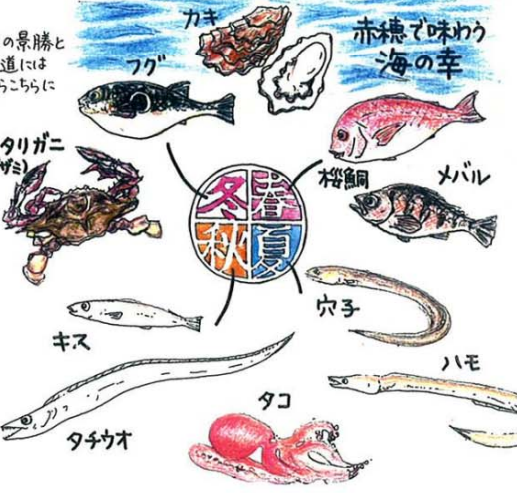 の景勝と
道には
らこちらに
カキ
赤穂で味わう
海の幸
フグ
タリガニ
ザミ)
桜鯛
メバル
冬春
秋夏
穴子
キス
ハモ
タチウオ
タコ